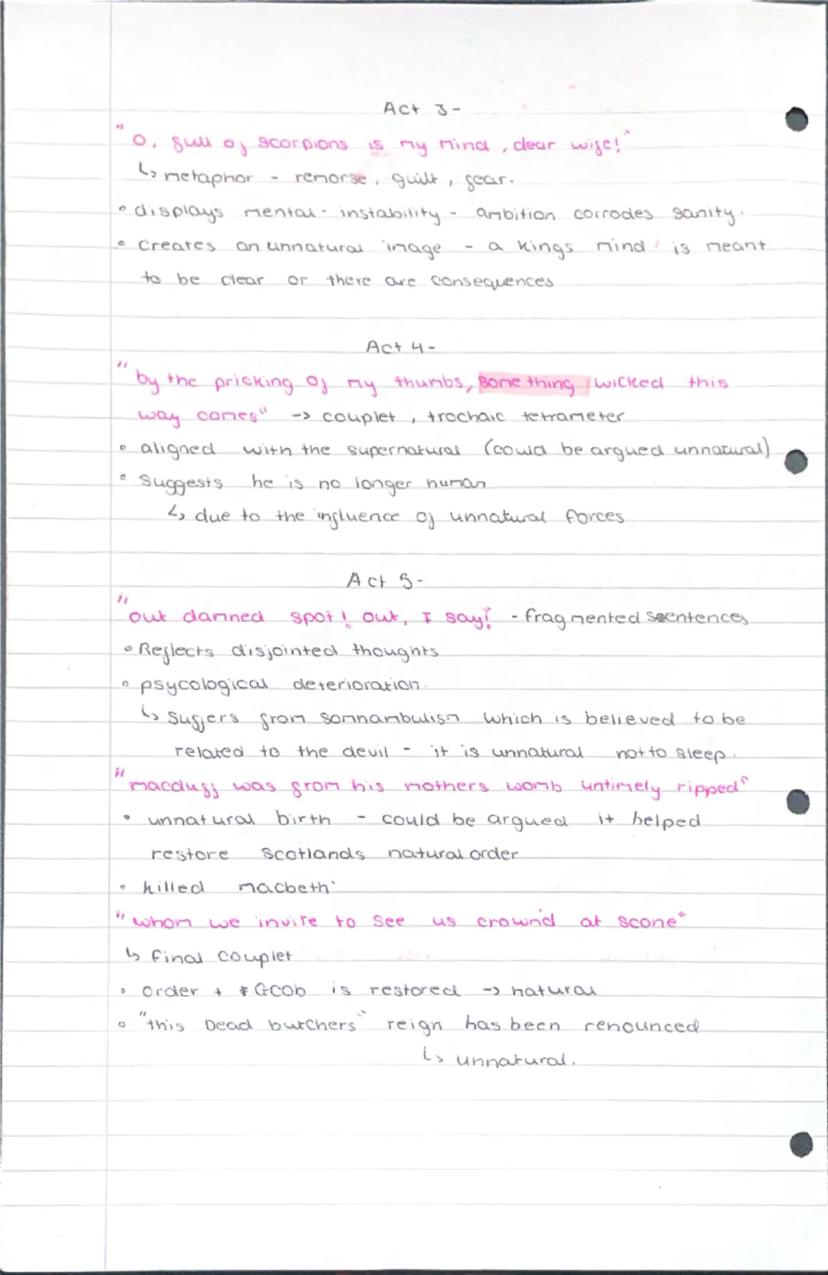 Act 3-
"O, full of scorpions is my mind, dear wife!"
↳ metaphor - remorse, guilt, fear.
• displays mental instability - ambition corrodes sanity.
• creates an unnatural image - a kings mind is meant
to be clear or there are consequences
Act 4-
"by the pricking of my thumbs, something wicked this
way comes" -> couplet, trochaic tetrameter
• aligned with the supernatural (could be argued unnatural)
• suggests he is no longer human
↳ due to the influence of unnatural forces
Act 5-
"out damned spot! out, I say!" - fragmented sentences
• Reflects disjointed thoughts
• psycological deterioration.
↳ suffers from somnambulism which is believed to be
related to the devil - it is unnatural not to sleep.
"macduff was from his mothers womb untimely ripped"
• unnatural birth - could be argued it helped
restore scotlands natural order
• killed macbeth
"whom we invite to see us crown'd at scone"
↳ final couplet
• order + GCOB is restored -> natural
• "this Dead butchers" reign has been renounced
↳ unnatural.